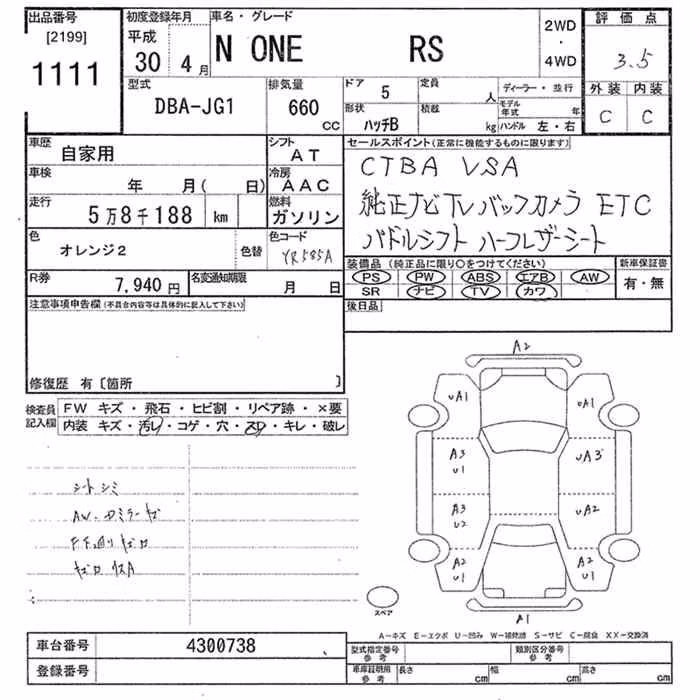 出品番号 [2199] 1111
初度登録年月 平成 30年 4月
車名・グレード N ONE RS
2WD・4WD
評価点 3.5
型式 DBA-JG1
排気量 660 CC
ドア 5
形状 ハッチB
定員 人
積載 kg
ディーラー・並行
モデル年式 年
ハンドル 左・右
外装 内装
C C
車歴 自家用
シフト AT
車検 年 月( 日)
冷房 AAC
走行 5万8千188 km
燃料 ガソリン
色 オレンジ2 色替
色コード YR585A
R券 7,940円
名変通知期限 月 日
セールスポイント(正常に機能するものに限ります)
CTBA VSA
純正ナビTVバックカメラ ETC
パドルシフト ハーフレザーシート
装備品(純正品に限り○をつけてください)
PS PW ABS エアB AW
SR ナビ TV カワ
新車保証書 有・無
注意事項申告欄(不具合内容等は具体的に記入して下さい)
後日品
修復歴 有〔箇所 〕
検査員記入欄
FW キズ・飛石・ヒビ割・リペア跡・×要
内装 キズ・汚レ・コゲ・穴・スレ・キレ・破レ
シートシミ
A2
UA1 UA1
A3 U1 UA3
A3 U2 UA2
A2 U1 A2 U1
A1
スペア
A-キズ E-エクボ U-凹み W-補修跡 S-サビ C-腐食 XX-交換済
車台番号 4300738
登録番号
型式指定番号 参考
類別区分番号 参考
車庫証明用 参考 長さ cm 幅 cm 高さ cm